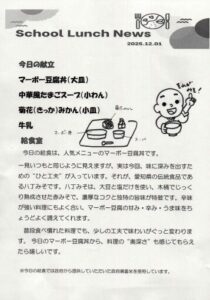 School Lunch News
2025.12.01
今日の献立
マーボー豆腐丼(大皿)
中華風たまごスープ(小わん)
菊花(きっか)みかん(小皿)
牛乳
給食室
今日の給食は、人気メニューのマーボー豆腐丼です。
一見いつもと同じように見えますが、実は今回、味に深みを出すた
めの“ひと工夫”が入っています。それが、愛知県の伝統食品であ
る八丁みそです。八丁みそは、大豆と塩だけを使い、木桶でじっく
り熟成させた赤みそで、濃厚なコクと独特の旨味が特徴です。辛味
が強い料理にもよく合い、マーボー豆腐の甘み・辛み・うま味をち
ょうどよく調えてくれます。
普段食べ慣れた料理でも、少しの工夫で味わいがぐっと変わりま
す。今日のマーボー豆腐丼から、料理の“奥深さ”も感じてもらえ
たら嬉しいです。
※今日の給食では政府から提供していただいた政府備蓄米を使用しています。